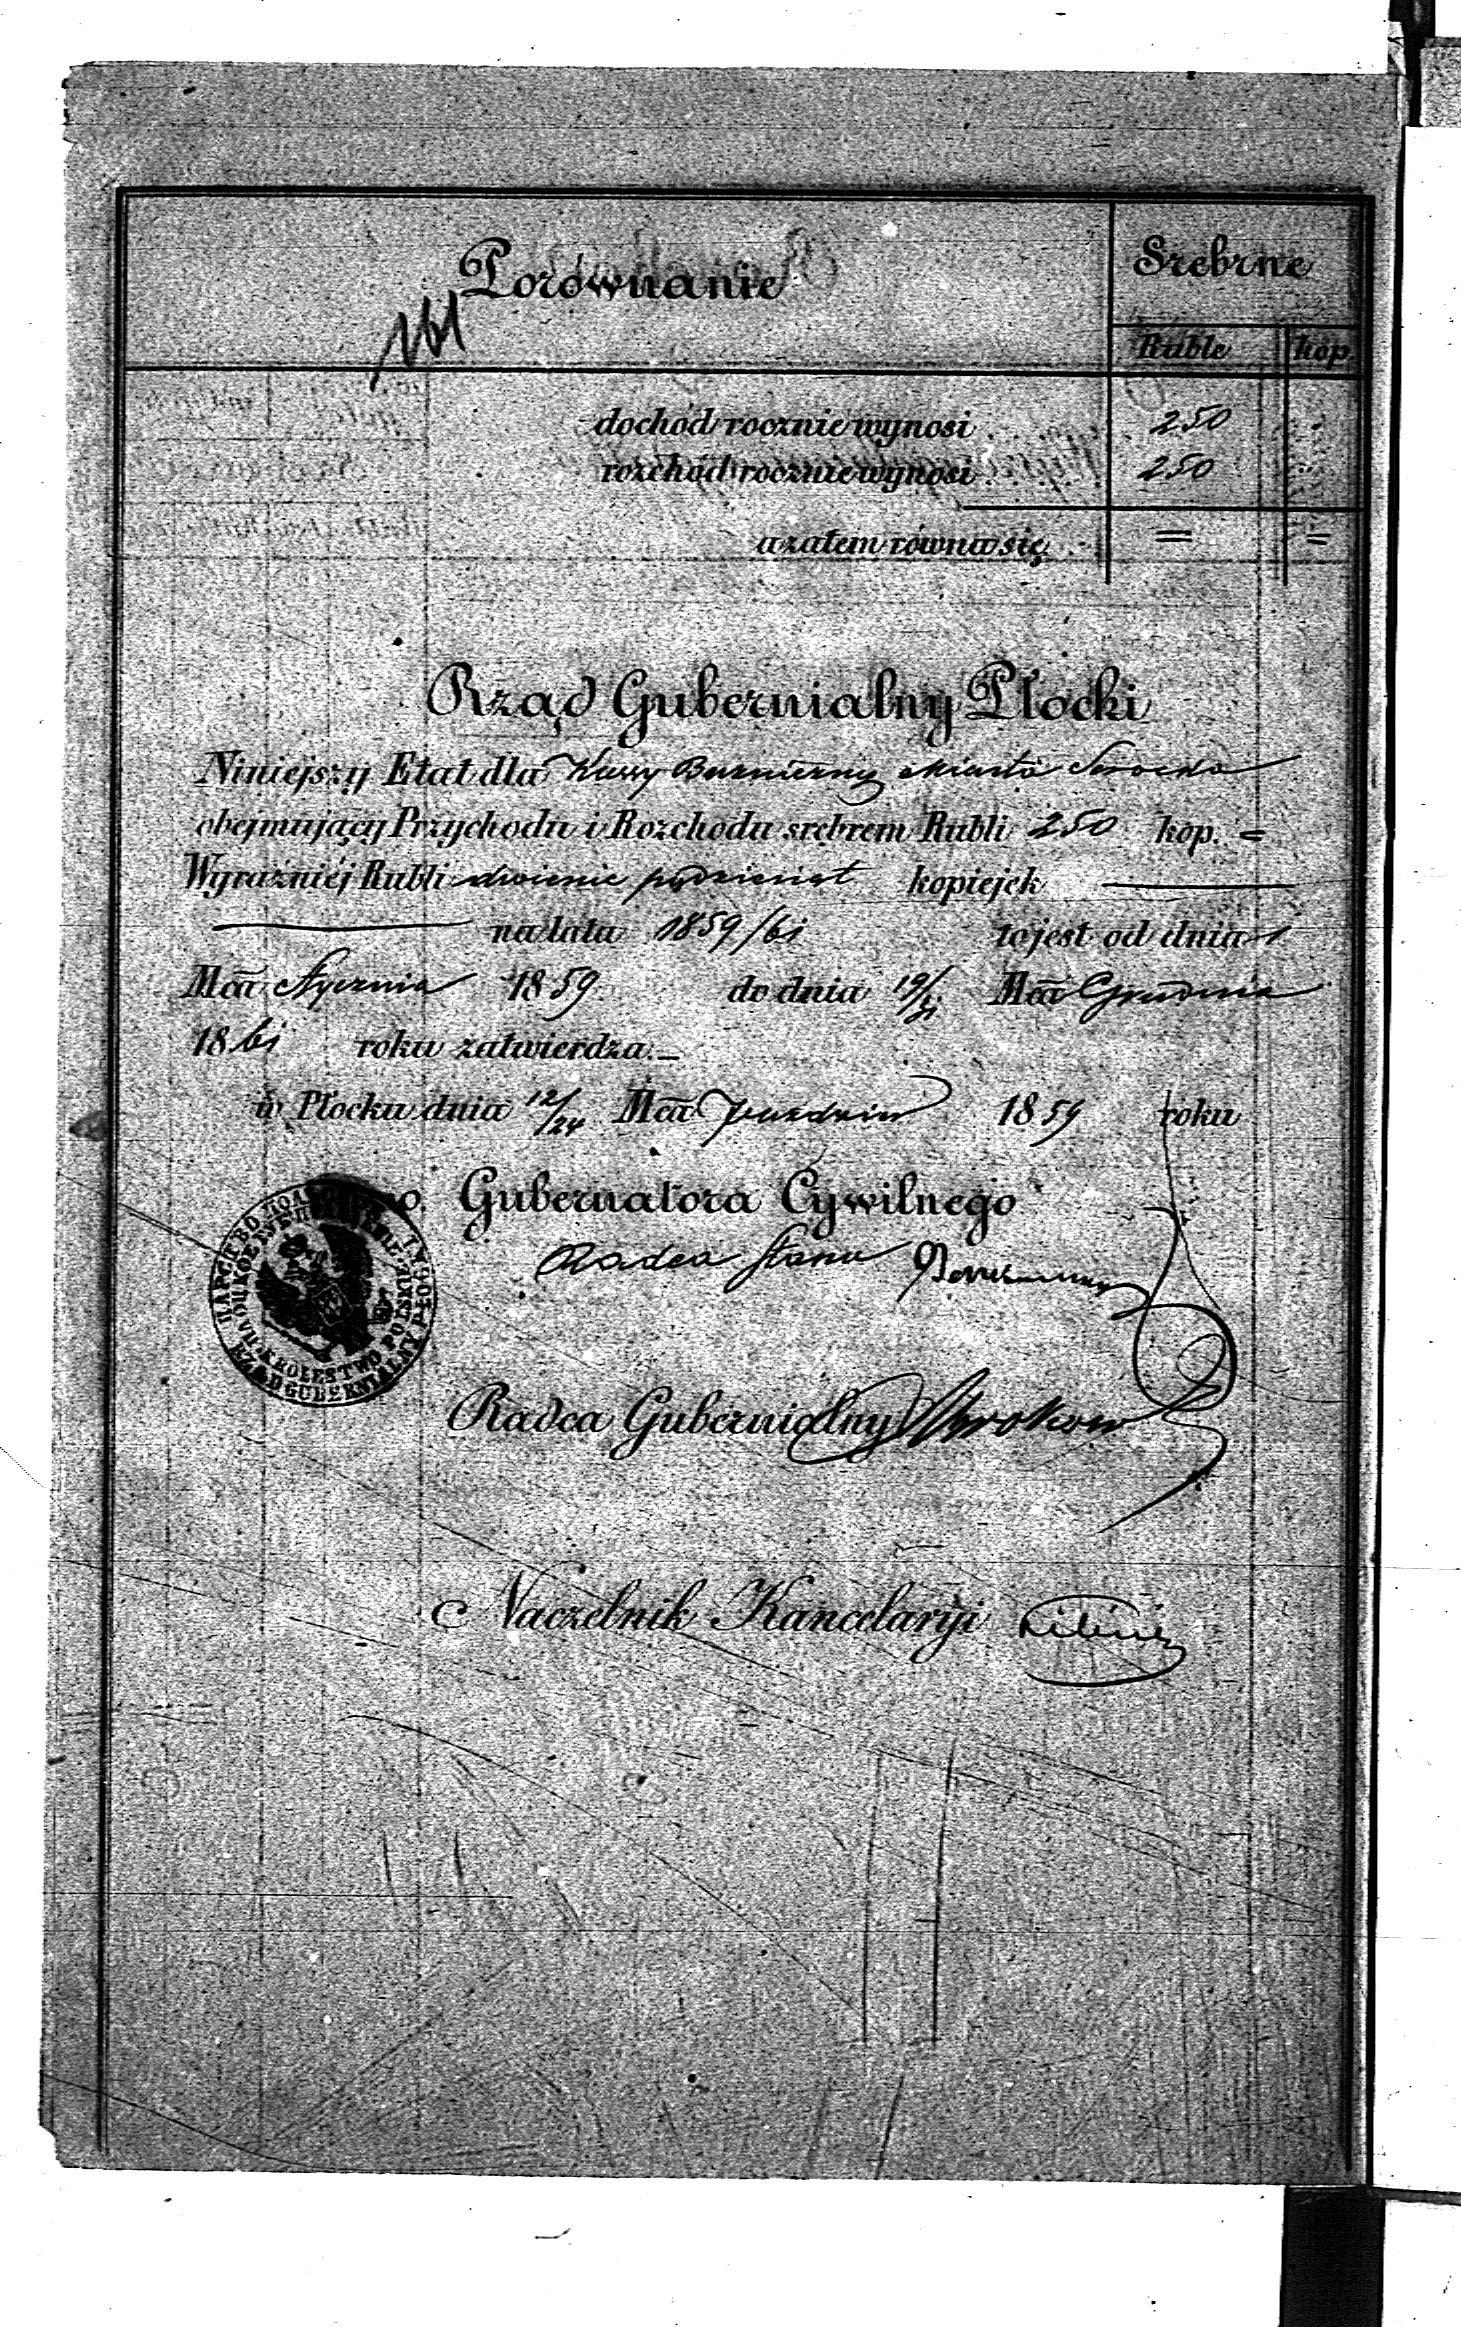 Porównanie
Srebrne
161
Ruble kop.
dochód rocznie wynosi 250
rozchód rocznie wynosi 250
a zatem równa się = =
Rząd Gubernialny Płocki
Niniejszy Etat dla Kassy Bużniczny Miasta Serocka
obejmujący Przychodu i Rozchodu srebrem Rubli 250 kop. =
Wyraźniéj Rubli dwieście pędziesiąt kopiejek
na lata 1859/61 to jest od dnia 1
Mca Stycznia 1859 do dnia 19/31 Mca Grudnia
1861 roku zatwierdza.
w Płocku dnia 12/24 Mca 1859 roku
o. Gubernatora Cywilnego
Radca Stanu
ЦАРСТВО ПОЛЬСКОЕ
KRÓLESTWO POLSKIE
RZĄD GUBERNIALNY PŁOCKI
Radca Gubernialny
Naczelnik Kancelaryi